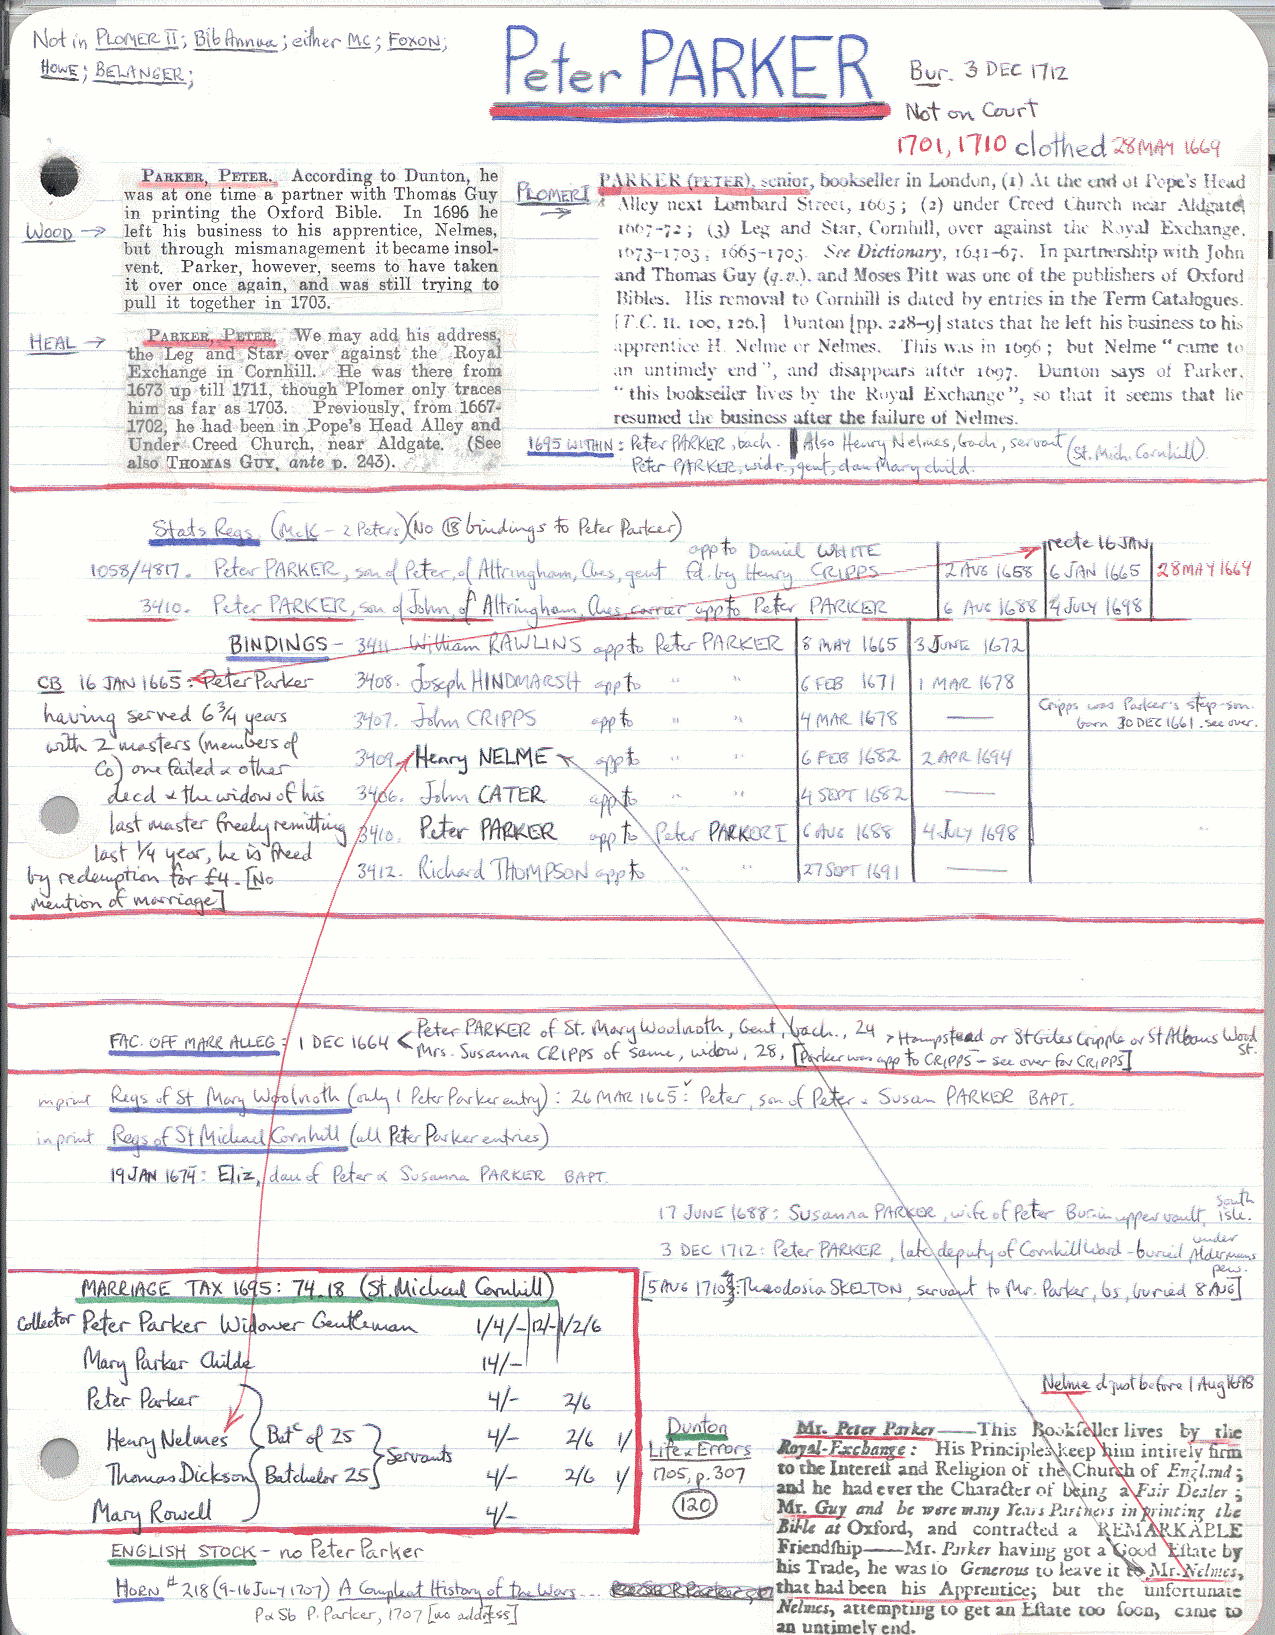 Not in PLOMER II; Bib Annua; either MC; FOXON;
HOWE; BELANGER;
Peter PARKER
Bur. 3 DEC 1712
Not on Court
1701, 1710 clothed 28 MAY 1669
WOOD →
PARKER, PETER. According to Dunton, he
was at one time a partner with Thomas Guy
in printing the Oxford Bible. In 1696 he
left his business to his apprentice, Nelmes,
but through mismanagement it became insol-
vent. Parker, however, seems to have taken
it over once again, and was still trying to
pull it together in 1703.
HEAL →
PARKER, PETER. We may add his address,
the Leg and Star over against the Royal
Exchange in Cornhill. He was there from
1673 up till 1711, though Plomer only traces
him as far as 1703. Previously, from 1667-
1702, he had been in Pope's Head Alley and
Under Creed Church, near Aldgate. (See
also THOMAS GUY, ante p. 243).
PLOMER I →
PARKER (PETER), senior, bookseller in London, (1) At the end of Pope's Head
Alley next Lombard Street, 1665; (2) under Creed Church near Aldgate,
1667-72; (3) Leg and Star, Cornhill, over against the Royal Exchange,
1673-1703. 1665-1703. See Dictionary, 1641-67. In partnership with John
and Thomas Guy (q.v.), and Moses Pitt was one of the publishers of Oxford
Bibles. His removal to Cornhill is dated by entries in the Term Catalogues.
[T.C. II. 100, 126.] Dunton [pp. 228-9] states that he left his business to his
apprentice H. Nelme or Nelmes. This was in 1696; but Nelme "came to
an untimely end", and disappears after 1697. Dunton says of Parker,
"this bookseller lives by the Royal Exchange", so that it seems that he
resumed the business after the failure of Nelmes.
1695 WITHIN: Peter PARKER, bach. Also Henry Nelmes, bach, servant (St. Mich. Cornhill).
Peter PARKER, widr., gent, dau Mary child.
Stats Regs (McK - 2 Peters) (No C18 bindings to Peter Parker)
app to Daniel WHITE
recte 16 JAN
1058/4817. Peter PARKER, son of Peter, of Altringham, Ches, gent fd. by Henry CRIPPS 2 AUG 1658 6 JAN 1665 28 MAY 1669
3410. Peter PARKER, son of John, of Altringham, Ches, carrier app to Peter PARKER 6 AUG 1688 4 JULY 1698
BINDINGS - 3411. William RAWLINS app to Peter PARKER 8 MAY 1665 3 JUNE 1672
3408. Joseph HINDMARSH app to " " 6 FEB 1671 1 MAR 1678
3407. John CRIPPS app to " " 4 MAR 1678 —
Cripps was Parker's step-son.
born 30 DEC 1661. see over.
3409. Henry NELME app to " " 6 FEB 1682 2 APR 1694
3406. John CATER app to " " 4 SEPT 1682 —
3410. Peter PARKER app to Peter PARKER I 6 AUG 1688 4 JULY 1698
3412. Richard THOMPSON app to " " 27 SEPT 1691 —
CB 16 JAN 1665: Peter Parker
having served 6¾ years
with 2 masters (members of
Co) one failed & other
decd & the widow of his
last master freely remitting
last ¼ year, he is freed
by redemption for £4. [No
mention of marriage]
FAC. OFF MARR ALLEG: 1 DEC 1664 < Peter PARKER of St. Mary Woolnoth, Gent, bach., 24 > Hampstead or St Giles Cripple or St Albans Wood St.
Mrs. Susanna CRIPPS of same, widow, 28, [Parker was app to CRIPPS - see over for CRIPPS]
in print Regs of St Mary Woolnoth (only 1 Peter Parker entry): 26 MAR 1665: Peter, son of Peter & Susan PARKER BAPT.
in print Regs of St Michael Cornhill (all Peter Parker entries)
19 JAN 1674: Eliz, dau of Peter & Susanna PARKER BAPT.
17 JUNE 1688: Susanna PARKER, wife of Peter Bur. in upper vault, south isle.
3 DEC 1712: Peter PARKER, late deputy of Cornhill Ward - buried under Aldermans pew.
[5 AUG 1710: Theodosia SKELTON, servant to Mr. Parker, bs, buried 8 AUG]
MARRIAGE TAX 1695: 74.18 (St. Michael Cornhill)
Collector Peter Parker Widower Gentleman 1/4/- 12/- 1/2/6
Mary Parker Childe 14/-
Peter Parker 4/- 2/6
Henry Nelmes Batc of 25 4/- 2/6 1/
Servants
Thomas Dickson Batchelor 25 4/- 2/6 1/
Mary Rowell 4/-
ENGLISH STOCK - no Peter Parker
HORN # 218 (9-16 July 1707) A Compleat History of the Wars...
P & Sb P. Parker, 1707 [no address]
Nelme d just before 1 Aug 1698
Dunton
Life & Errors
1705, p. 307
(120)
Mr. Peter Parker—This Bookseller lives by the
Royal-Exchange: His Principles keep him intirely firm
to the Interest and Religion of the Church of England;
and he had ever the Character of being a Fair Dealer;
Mr. Guy and he were many Years Partners in printing the
Bible at Oxford, and contracted a REMARKABLE
Friendship—Mr. Parker having got a Good Estate by
his Trade, he was so Generous to leave it to Mr. Nelmes,
that had been his Apprentice; but the unfortunate
Nelmes, attempting to get an Estate too soon, came to
an untimely end.